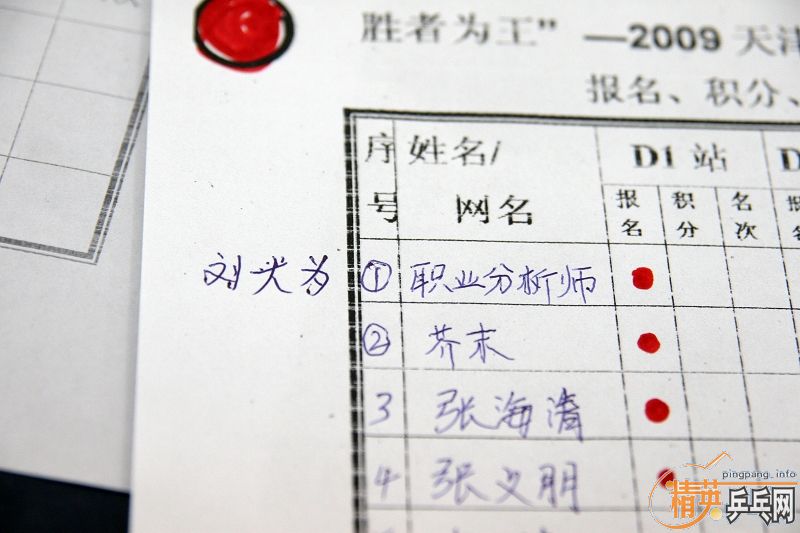 胜者为王”—2009 天津
报名、积分、
序号 姓名/网名 D1 站 D
报名 积分 名次 报名
刘大为 ① 职业分析师
② 芥末
3 张海清
4 张义朋
pingpang.info
精英乒乓网